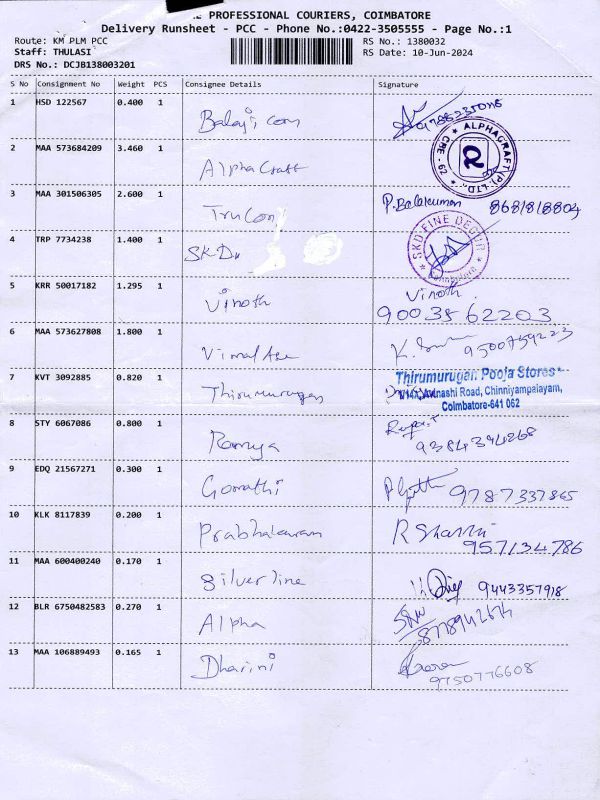 PROFESSIONAL COURIERS, COIMBATORE
Delivery Runsheet - PCC - Phone No.:0422-3505555 - Page No.:1
Route: KM PLM PCC RS No.: 1380032
Staff: THULASI RS Date: 10-Jun-2024
DRS No.: DCJB138003201
S No Consignment No Weight PCS Consignee Details Signature
1 HSD 122567 0.400 1 Balaji com
2 MAA 573684209 3.460 1 AlphaCraft ALPHACRAFT (P) LTD. CBE - 62
3 MAA 301506305 2.600 1 Trucon P. Balakumar 8681818804
4 TRP 7734238 1.400 1 SKD SKD FINE DECOR
5 KRR 50017182 1.295 1 Vinoth Vinoth
9003562203
6 MAA 573627808 1.800 1 Vimal 9500759223
7 KVT 3092885 0.820 1 Thirumurugan Thirumurugan Pooja Stores
Avinashi Road, Chinniyampalayam,
Coimbatore-641 062
8 STY 6067086 0.800 1 Ramya 9384394268
9 EDQ 21567271 0.300 1 Gomathi 9787337865
10 KLK 8117839 0.200 1 Prabhakaran R Sharmi
957134786
11 MAA 600400240 0.170 1 Silverline 9443357918
12 BLR 6750482583 0.270 1 Alpha
13 MAA 106889493 0.165 1 Dharini
9750776608